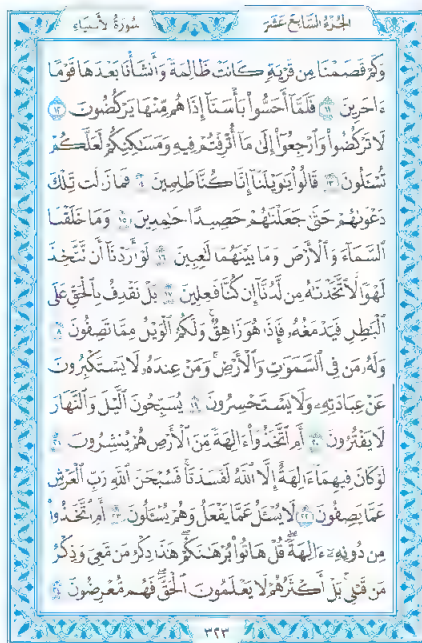 الجزء السابع عشر سورة الأنبياء
وَكَمْ قَصَمْنَا مِن قَرْيَةٍ كَانَتْ ظَالِمَةً وَأَنشَأْنَا بَعْدَهَا قَوْمًا
ءَاخَرِينَ ١١ فَلَمَّآ أَحَسُّوا۟ بَأْسَنَآ إِذَا هُم مِّنْهَا يَرْكُضُونَ ١٢
لَا تَرْكُضُوا۟ وَٱرْجِعُوٓا۟ إِلَىٰ مَآ أُتْرِفْتُمْ فِيهِ وَمَسَٰكِنِكُمْ لَعَلَّكُمْ
تُسْـَٔلُونَ ١٣ قَالُوا۟ يَٰوَيْلَنَآ إِنَّا كُنَّا ظَٰلِمِينَ ١٤ فَمَا زَالَت تِّلْكَ
دَعْوَىٰهُمْ حَتَّىٰ جَعَلْنَٰهُمْ حَصِيدًا خَٰمِدِينَ ١٥ وَمَا خَلَقْنَا
ٱلسَّمَآءَ وَٱلْأَرْضَ وَمَا بَيْنَهُمَا لَٰعِبِينَ ١٦ لَوْ أَرَدْنَآ أَن نَّتَّخِذَ
لَهْوًا لَّٱتَّخَذْنَٰهُ مِن لَّدُنَّآ إِن كُنَّا فَٰعِلِينَ ١٧ بَلْ نَقْذِفُ بِٱلْحَقِّ عَلَى
ٱلْبَٰطِلِ فَيَدْمَغُهُۥ فَإِذَا هُوَ زَاهِقٌ ۚ وَلَكُمُ ٱلْوَيْلُ مِمَّا تَصِفُونَ ١٨
وَلَهُۥ مَن فِى ٱلسَّمَٰوَٰتِ وَٱلْأَرْضِ ۚ وَمَنْ عِندَهُۥ لَا يَسْتَكْبِرُونَ
عَنْ عِبَادَتِهِۦ وَلَا يَسْتَحْسِرُونَ ١٩ يُسَبِّحُونَ ٱلَّيْلَ وَٱلنَّهَارَ
لَا يَفْتُرُونَ ٢٠ أَمِ ٱتَّخَذُوٓا۟ ءَالِهَةً مِّنَ ٱلْأَرْضِ هُمْ يُنشِرُونَ ٢١
لَوْ كَانَ فِيهِمَآ ءَالِهَةٌ إِلَّا ٱللَّهُ لَفَسَدَتَا ۚ فَسُبْحَٰنَ ٱللَّهِ رَبِّ ٱلْعَرْشِ
عَمَّا يَصِفُونَ ٢٢ لَا يُسْـَٔلُ عَمَّا يَفْعَلُ وَهُمْ يُسْـَٔلُونَ ٢٣ أَمِ ٱتَّخَذُوا۟
مِن دُونِهِۦٓ ءَالِهَةً ۖ قُلْ هَاتُوا۟ بُرْهَٰنَكُمْ ۖ هَٰذَا ذِكْرُ مَن مَّعِىَ وَذِكْرُ
مَن قَبْلِى ۗ بَلْ أَكْثَرُهُمْ لَا يَعْلَمُونَ ٱلْحَقَّ ۖ فَهُم مُّعْرِضُونَ ٢٤
٣٢٣